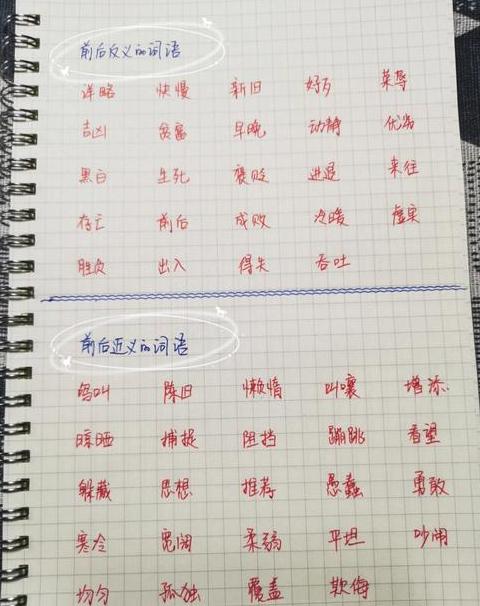 前后反义的词语
详略 快慢 新旧 好歹 荣辱
吉凶 贫富 早晚 动静 优劣
黑白 生死 褒贬 进退 来往
存亡 前后 成败 冷暖 虚实
胜负 出入 得失 吞吐
前后近义的词语
鸣叫 陈旧 懒惰 叫嚷 增添
晾晒 捕捉 阻挡 蹦跳 看望
躲藏 思想 推荐 愚蠢 勇敢
寒冷 宽阔 柔弱 平坦 吵闹
均匀 孤独 覆盖 欺侮